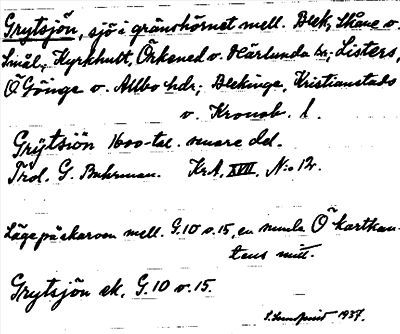 Grytsjön, sjö i gränshörnet mell. Blek, Skåne o.
Smål.; Kyrkhult, Örkened o. Härlunda snr; Listers,
Ö Göinge o. Allbo hdr; Blekinge, Kristianstads
o. Kronob. l.
Grytsiön 1600-tal. snare dd.
Trol. G. Buhrman. KrA. XVII. No 12.
Läge på skaron mell. G.10 o. 15, en mm fr Ö kartkan-
tens mitt.
Grytsjön ek. G.10 o. 15.
1937.